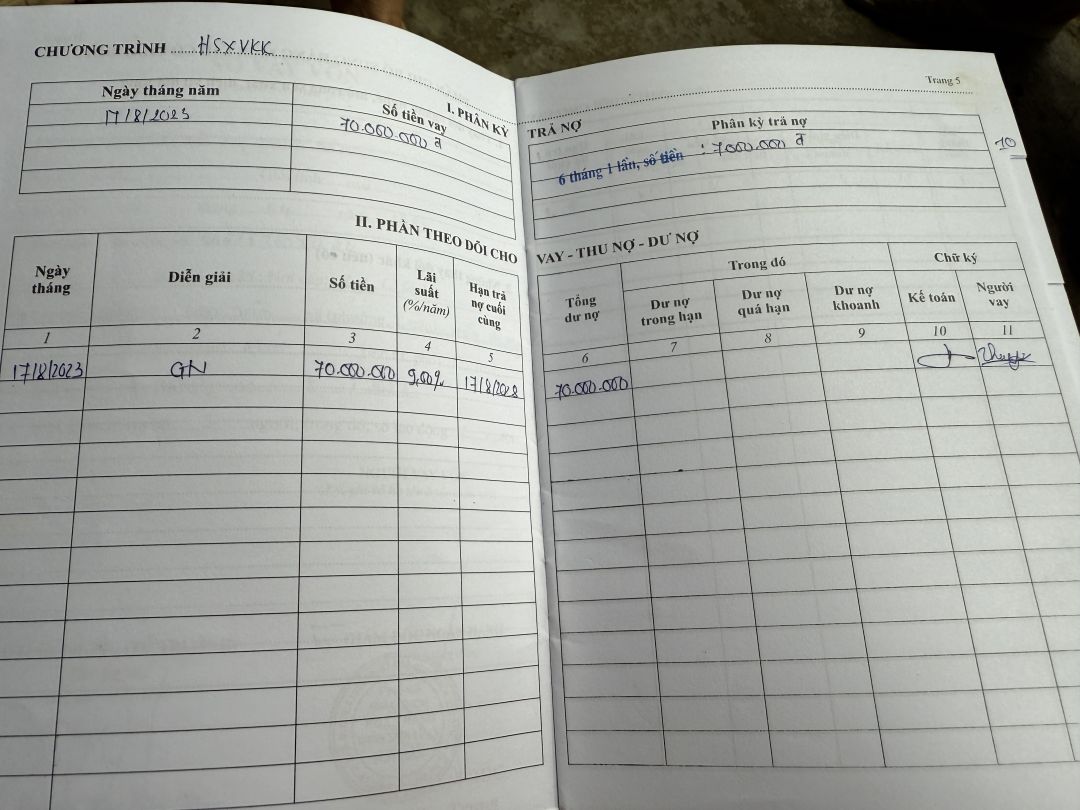 CHƯƠNG TRÌNH HSXVKK
Trang 5
I. PHÂN KỲ TRẢ NỢ
Ngày tháng năm
Số tiền vay
Phân kỳ trả nợ
17/8/2023
70.000.000 đ
6 tháng 1 lần, số tiền : 7000.000 đ
10
II. PHẦN THEO DÕI CHO VAY - THU NỢ - DƯ NỢ
Ngày tháng
Diễn giải
Số tiền
Lãi suất (%/năm)
Hạn trả nợ cuối cùng
Tổng dư nợ
Trong đó
Dư nợ trong hạn
Dư nợ quá hạn
Dư nợ khoanh
Chữ ký
Kế toán
Người vay
1 2 3 4 5 6 7 8 9 10 11
17/8/2023 GN 70.000.000 9,00% 17/8/2028 70.000.000